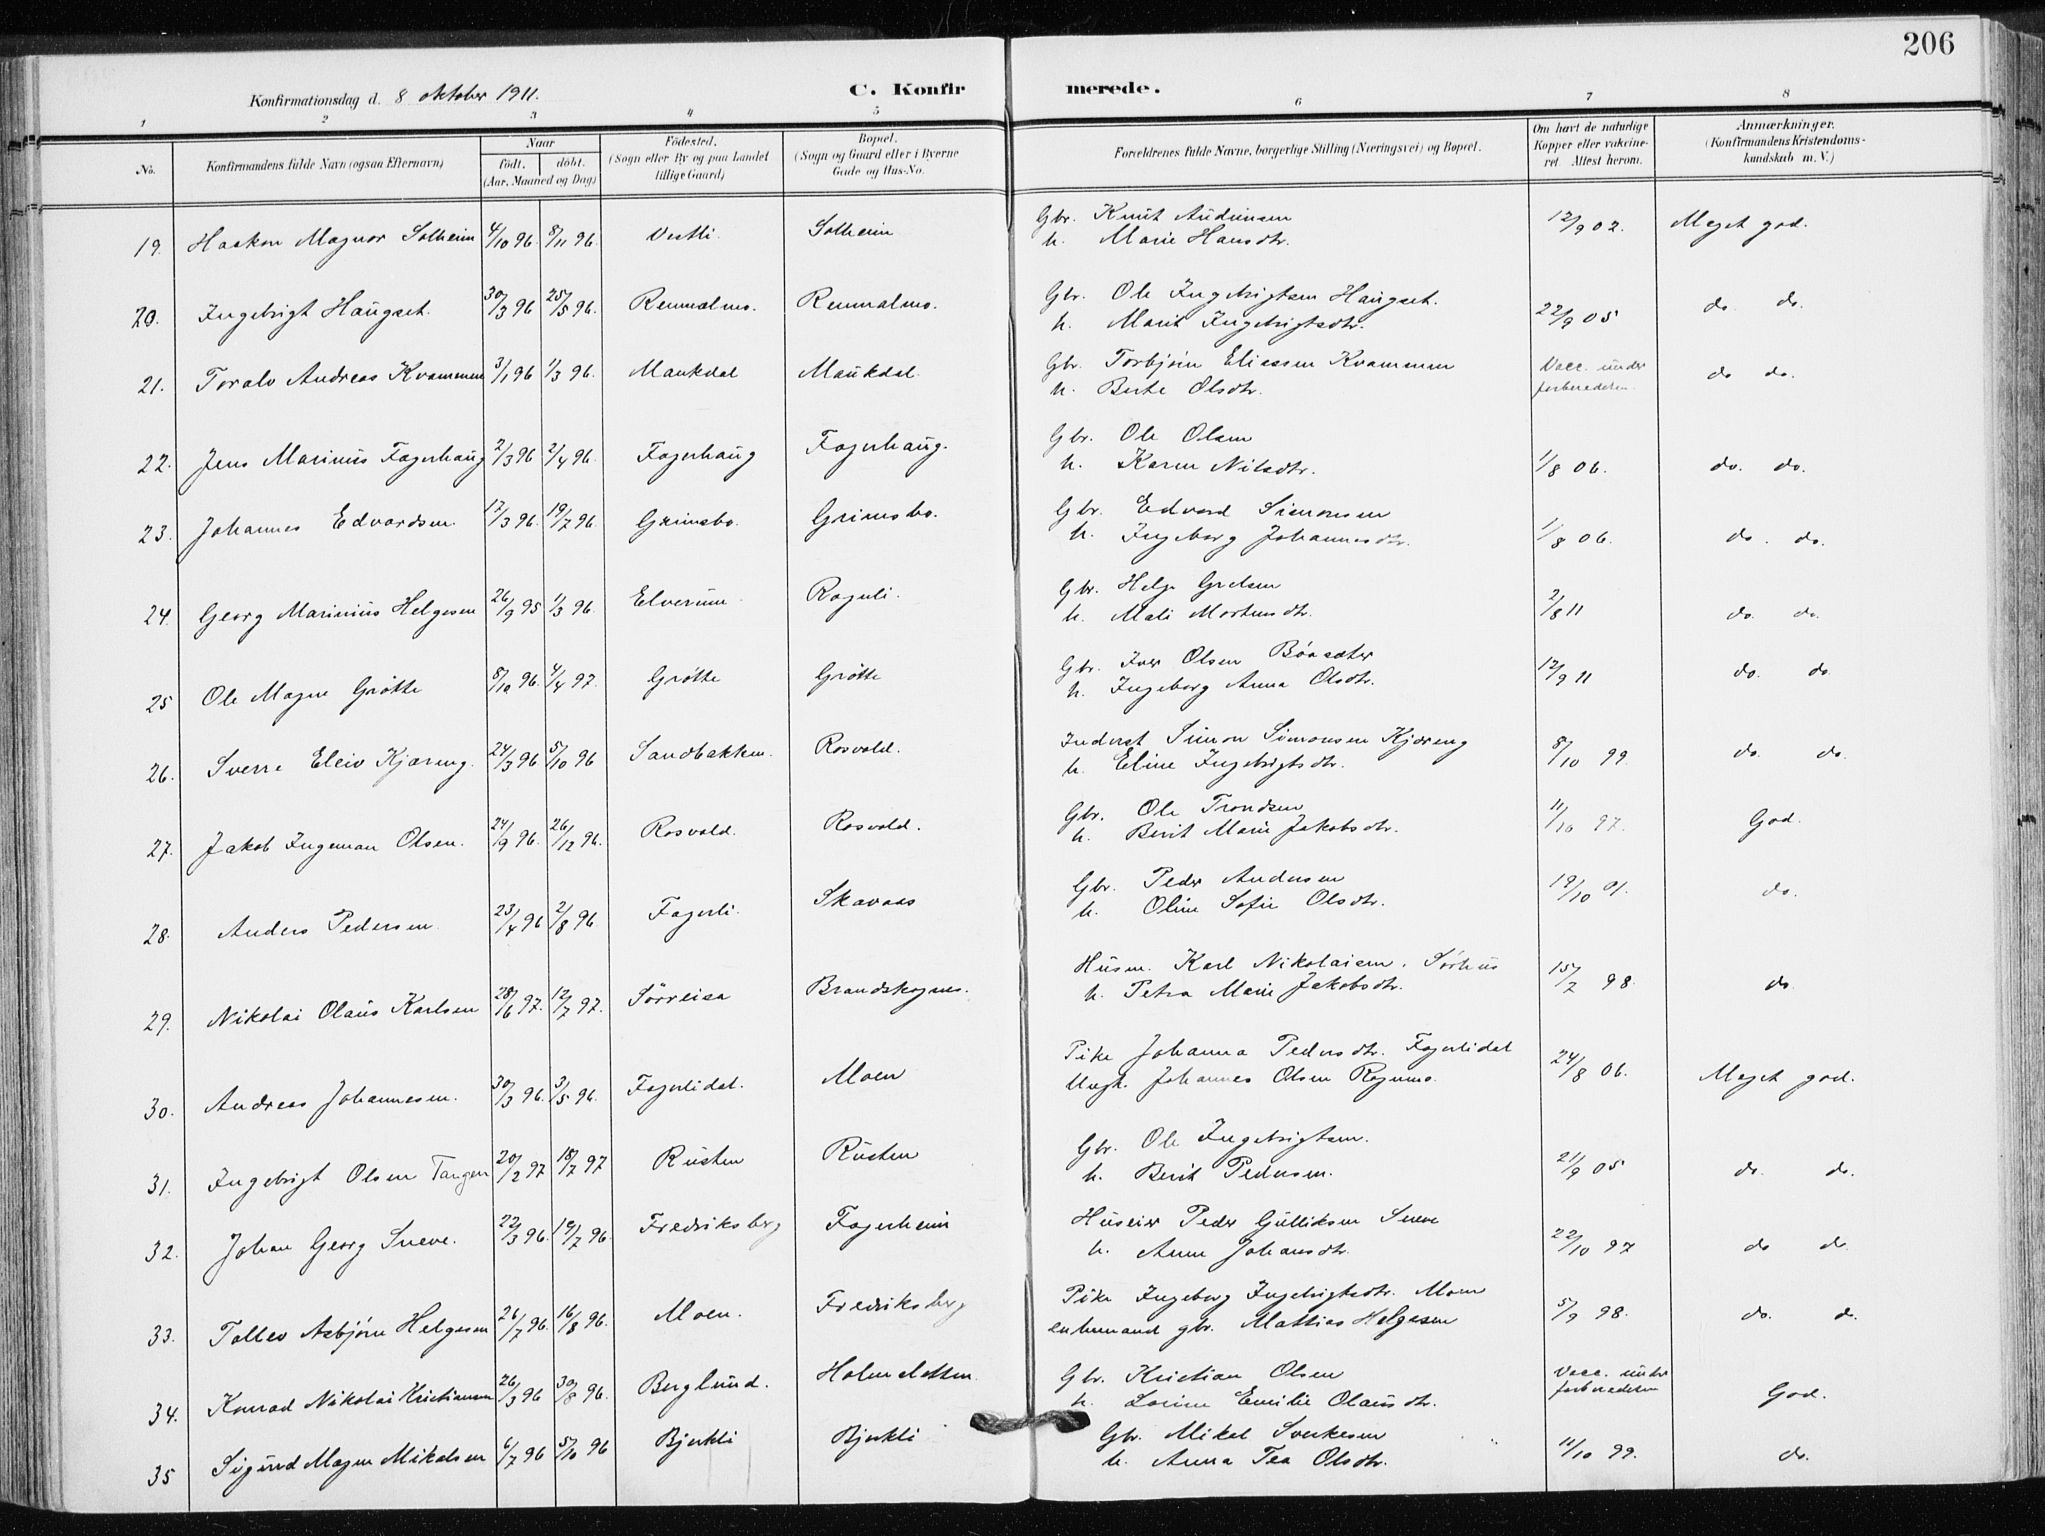 206
Konfirmationsdag d. 8 oktober 1911. C. Konfirmerede.
1 2 3 4 5 6 7 8
No. Konfirmandens fulde Navn (ogsaa Efternavn) Naar født. døbt. (Aar, Maaned og Dag) Födested. (Sogn eller By og paa Landet tillige Gaard) Bopæl. (Sogn og Gaard eller i Byerne Gade og Hus-No. Forældrenes fulde Navne, borgerlige Stilling (Næringsvei) og Bopæl. Om havt de naturlige Kopper eller vakcineret. Attest herom. Anmærkninger. (Konfirmandens Kristendomskundskab m. V.)
19. Haakon Magnor Solheim 4/10 96. 8/11 96. Vestli Solheim Gbr. Knut Audunsen 12/9 02. Meget god.
h. Marie Hansdtr.
20. Ingebrigt Haugset. 30/3 96 25/5 96. Renmælmo. Renmælmo. Gbr. Ole Ingebrigtsen Haugset. 22/9 05 do do.
h. Marit Ingebrigtsdtr.
21. Toralv Andreas Kvammen 3/1 96 1/3 96. Maukdal Maukdal. Gbr. Torbjørn Eliassen Kvammen Vacc. under do do.
h. Berte Olsdtr. forberedelsen.
22. Jens Marinius Fagerhaug 2/3 96 2/4 96. Fagerhaug Fagerhaug. Gbr. Ole Olsen 1/8 06. do. do.
h. Karen Nilsdtr.
23. Johannes Edvardsen. 17/3 96. 19/7 96. Grimsbo. Grimsbo. Gbr. Edvard Simonsen 1/8 06. do. do.
h. Ingeborg Johannesdtr.
24. Georg Marinius Helgesen 26/9 95 1/3 96. Elverum. Roguli. Gbr. Helge Gretsen 2/8 11 do. do.
h. Mali Mortensdtr.
25 Ole Magne Grøtte 8/10 96. 4/4 97. Grøtte Grøtte Gbr. Iver Olsen Bøasæter 12/9 11 do. do.
h. Ingeborg Anna Olsdtr.
26. Sverre Eleiv Kjæreng. 24/3 96 5/10 96 Sandbakken. Rosvold. Inderst Simon Simonsen Kjæreng 8/10 99. do. do.
h. Eline Ingebrigtsdtr.
27. Jakob Ingeman Olsen. 24/9 96. 26/12 96. Rosvold. Rosvold. Gbr. Ole Trondsen 11/10 97. God.
h. Berit Marie Jakobsdtr.
28. Anders Pedersen. 23/4 96 2/8 96 Fagerli. Skavaas Gbr. Peder Andersen 19/10 01. do.
h. Oline Sofie Olsdtr.
29. Nikolai Olaus Karlsen 28/6 97. 12/7 97. Sørreisa Brandskogmo. Husm. Karl Nikolaisen. Sørhus 15/7 98. do.
h. Petra Marie Jakobsdtr.
30. Andreas Johannesen. 30/3 96. 3/5 96. Fagerlidal. Moen Pike Johanna Pedersdtr. Fagerlidal 24/8 06. Meget god.
Ungk. Johannes Olsen Rognmo.
31. Ingebrigt Olsen Tangen 20/2 97 18/7 97 Rusten Rusten Gbr. Ole Ingebrigtsen. 21/9 05 do. do.
h. Berit Pedersen.
32. Johan Georg Sneve. 22/3 96. 19/7 96. Fredriksberg Fagerheim Huseier Peder Gulliksen Sneve 22/10 97 do do
h. Anne Johansdtr.
33. Tollev Asbjørn Helgesen 26/7 96. 16/8 96. Moen. Fredriksberg Pike Ingeborg Ingebrigtsdtr. Moen 5/9 98. do. do.
enkemand gbr. Mattias Helgesen
34. Konrad Nikolai Kristiansen 26/3 96 30/8 96. Berglund. Holmeslotten Gbr. Kristian Olsen Vacc. under God.
h. Lorine Emilie Olausdtr. forberedelsen
35 Sigurd Magne Mikalsen 6/7 96 5/10 96 Bjerkli Bjerkli Gbr. Mikal Sverkesen 11/10 99. do.
h. Anna Tea Olsdtr.